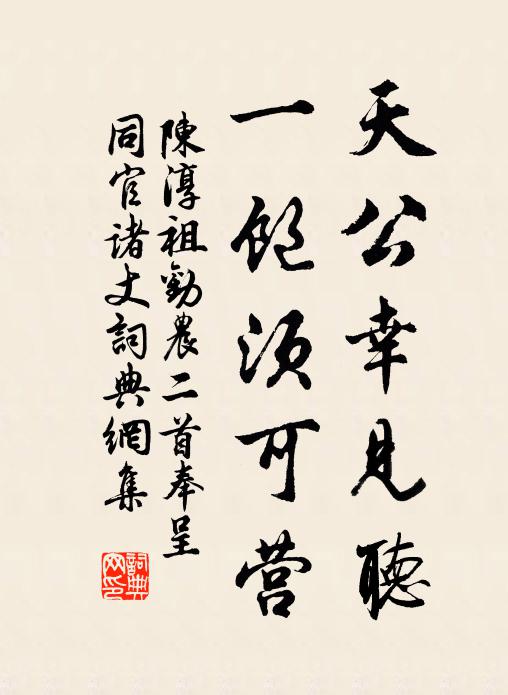 天公幸見聽
一飽須可營
陳淳祖勸農二首奉呈
同官诸丈詞典網集
詞典网印